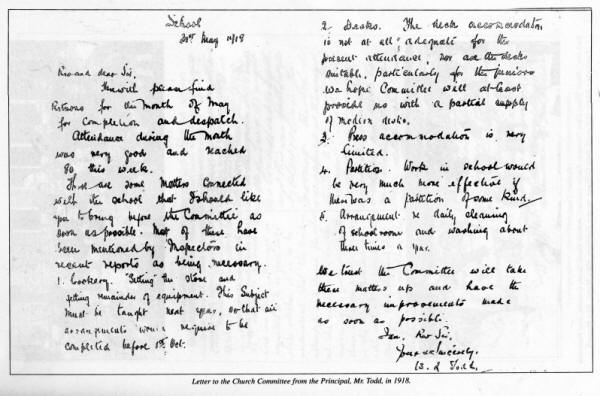 School
20th May 1918
Rev and dear Sir,
Herewith please find
Returns for the month of May
for completion and despatch.
Attendance during the month
was very good and reached
80 this week.
There are some matters connected
with the school that I should like
you to bring before the Committee as
soon as possible. Most of these have
been mentioned by Inspectors in
recent reports as being necessary.
1. Cookery. "Setting" the stove and
getting remainder of equipment. This Subject
must be taught next year, so that all
arrangements would require to be
completed before 1st Oct.
2. Desks. The desk accommodation
is not at all adequate for the
present attendance, nor are the desks
suitable, particularly for the juniors
we hope Committee will at least
provide us with a partial supply
of modern desks.
3. Press accommodation is very
limited.
4. Partition. Work in school would
be very much more effective if
there was a partition of some kind.
5. Arrangement re daily cleaning
of schoolroom and washing about
three times a year.
We trust the Committee will take
these matters up and have the
necessary improvements made
as soon as possible.
I am, Rev Sir,
Yours sincerely,
Todd.
Letter to the Church Committee from the Principal, Mr. Todd, in 1918.